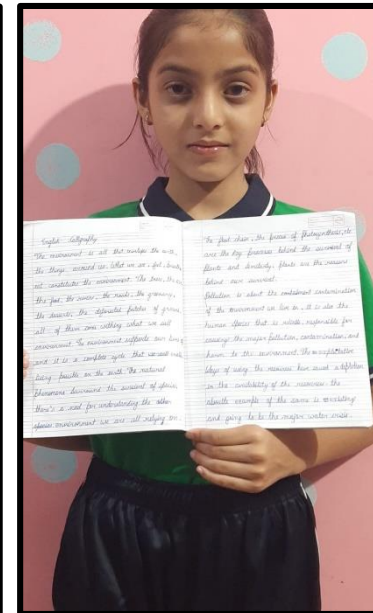 English Calligraphy
The environment is all that envelops the earth,
the things around us. What we see, feel, breath,
not constitutes the environment. The trees, the
the food, the rivers, the roads, the greenery,
the deserts, the deforested patches of ground
all of them come withing what we call
environment. The environment supports our lives
and it is a complete cycle that
living on the earth. The natural
phenomena surround the survival of species
there's a need for understanding the other
species environment we are all relying on.
The food chain, the process of Photosynthesis, etc
are the key processes behind the survival of
plants and similarly, plants are the reasons
behind own survival.
Pollution is about the contaminant contamination
of the environment we live on. It is also the
human Species that is whole responsible for
causing the major pollution, contamination, and
harm to the environment. The
Ways of using the resources have caused a depletion
in the availability of the resources. the
example of the same is
and going to be the major water crisis.